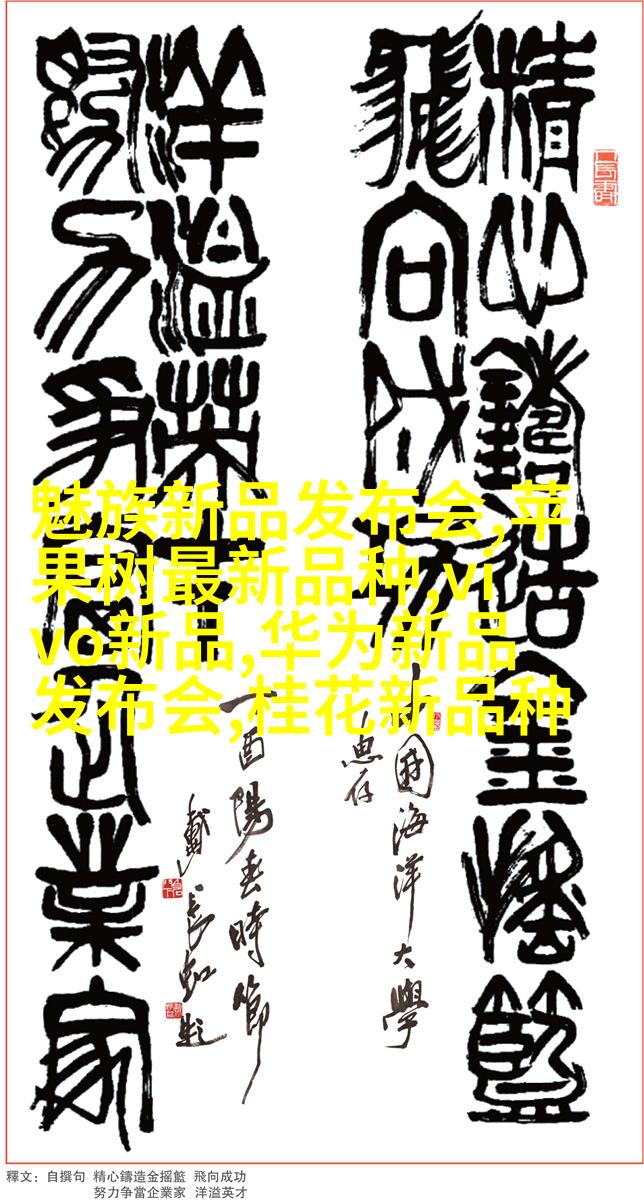 精心鑄造金摇籃
飛向成功
中國海洋大學
惠存
洋溢英才
努力争當企業家
丁酉陽春時節
戴長虹題
魅族新品发布会,苹
果树最新品种,vi
vo新品,华为新品
发布会,桂花新品种
釋文：自撰句 精心鑄造金摇籃 飛向成功
努力争當企業家 洋溢英才